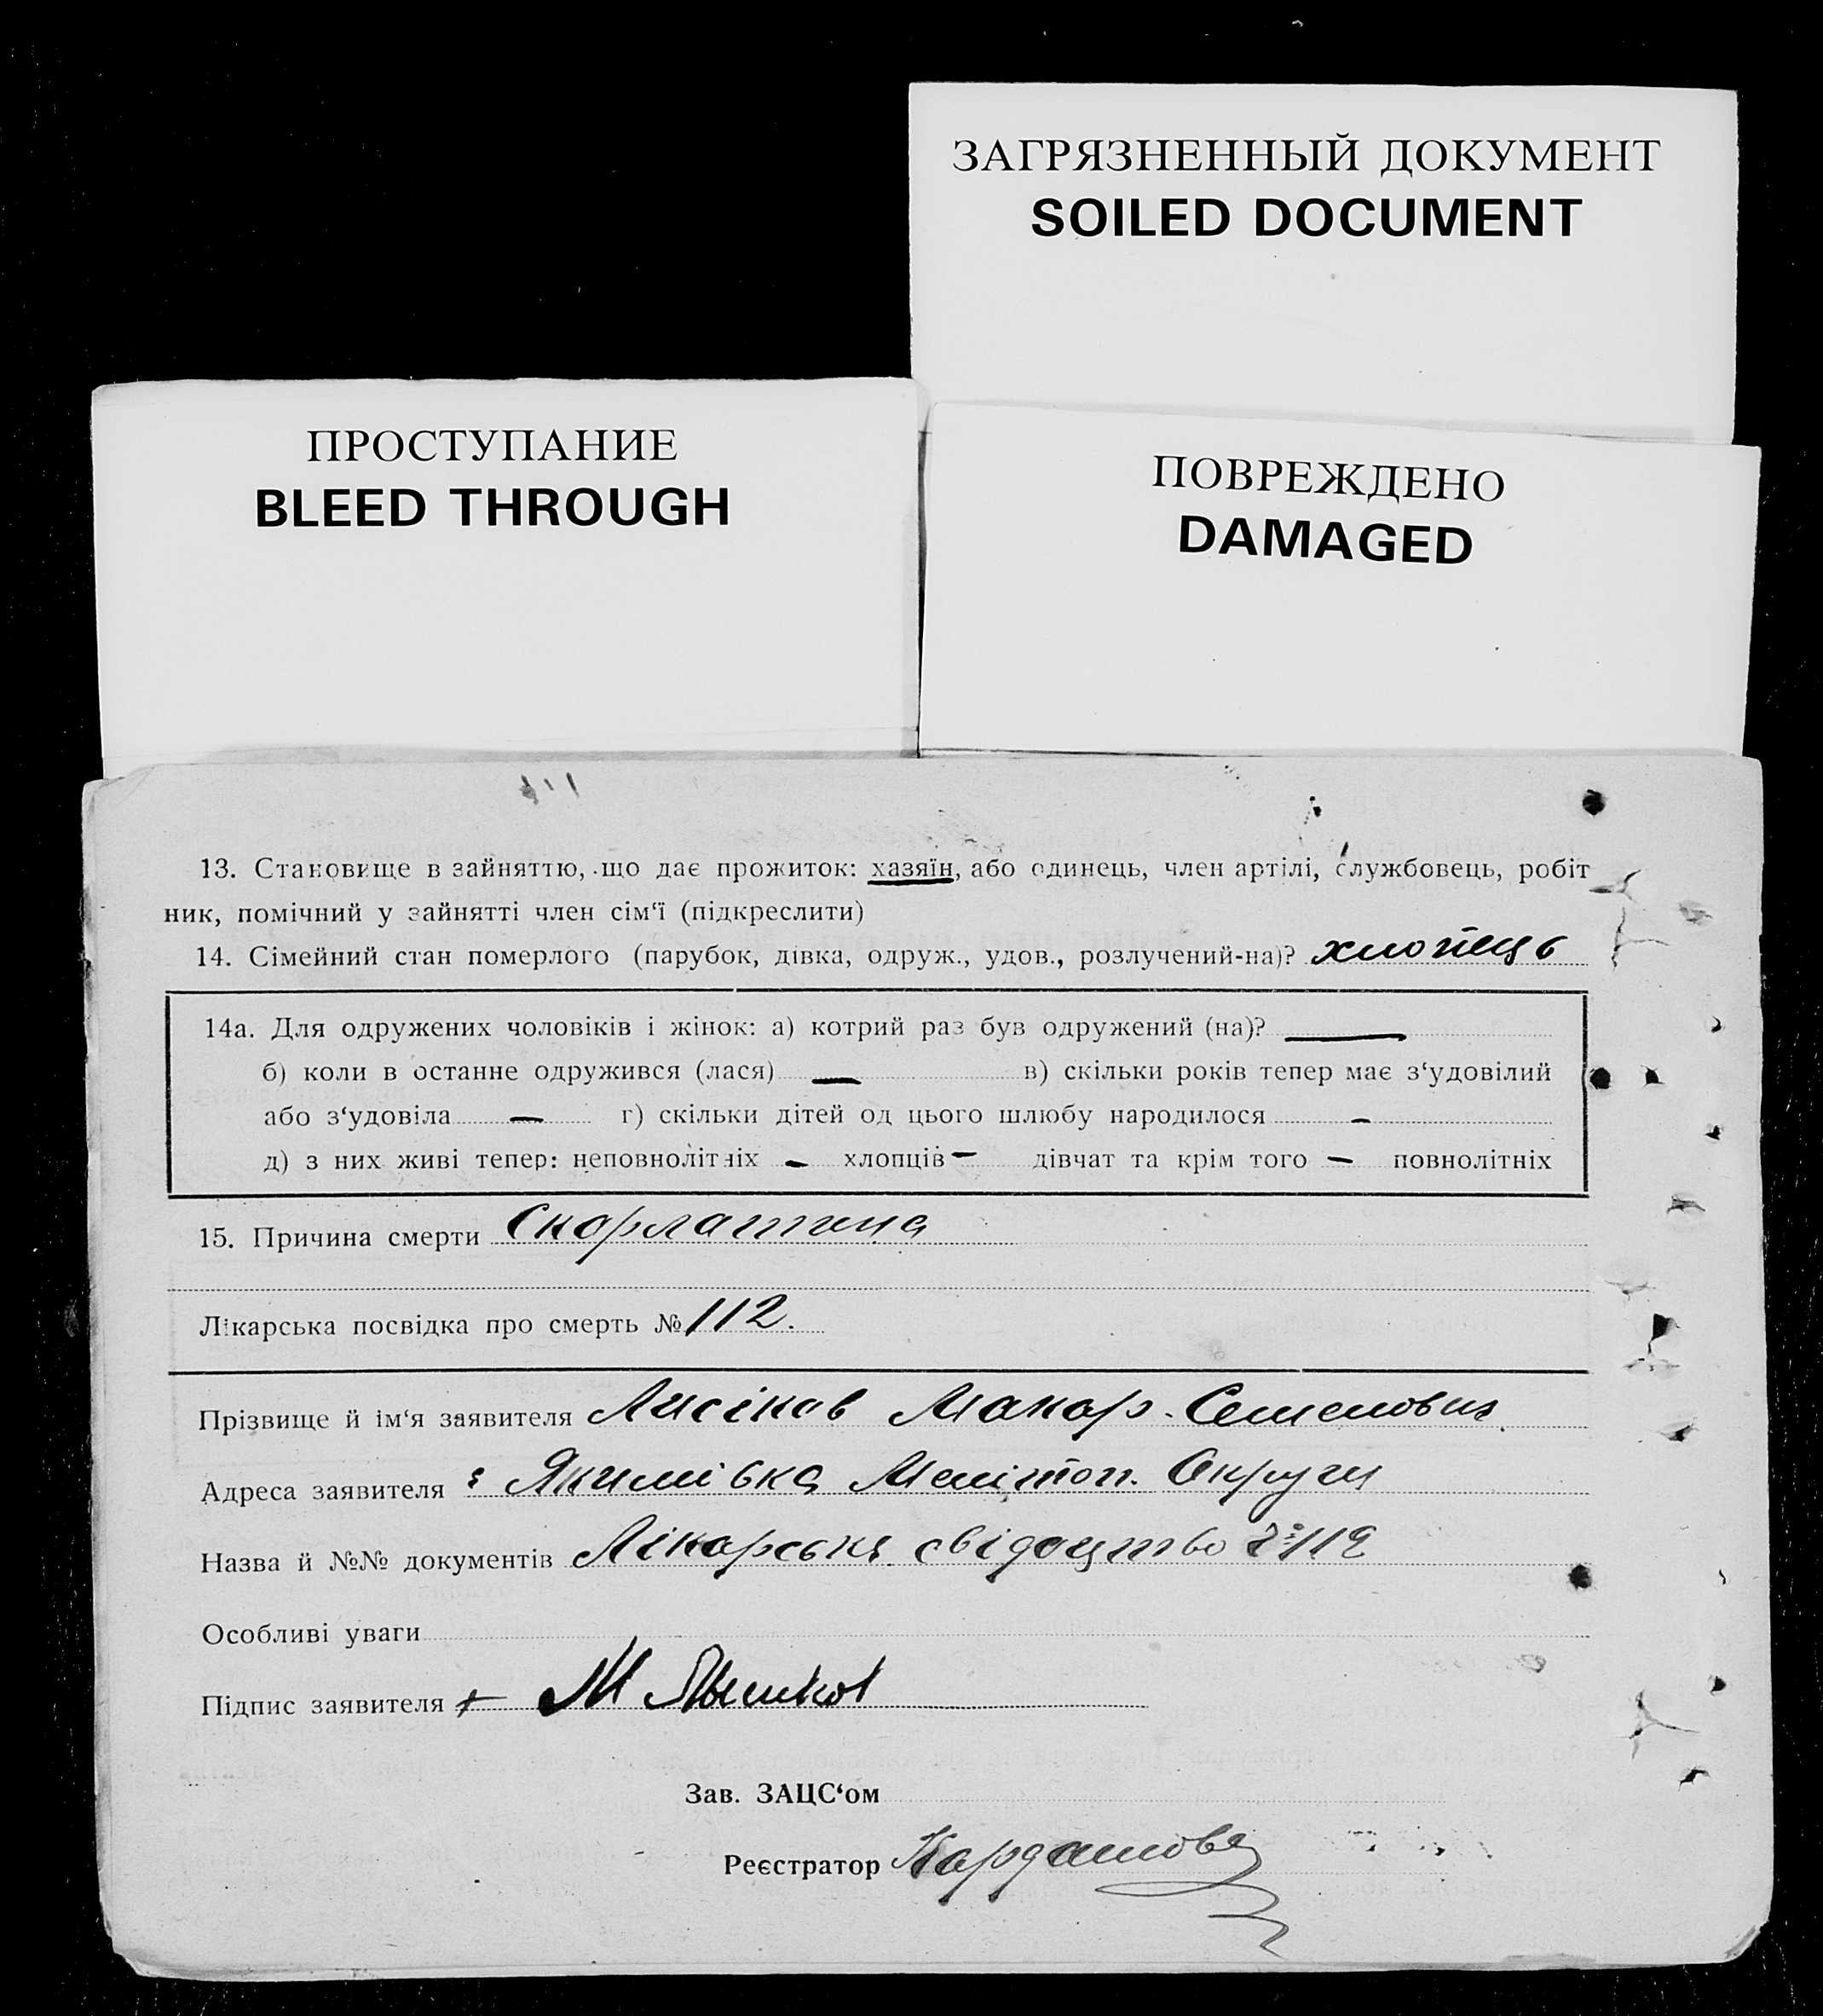 ЗАГРЯЗНЕННЫЙ ДОКУМЕНТ
SOILED DOCUMENT
ПРОСТУПАНИЕ
BLEED THROUGH
ПОВРЕЖДЕНО
DAMAGED
13. Становище в зайняттю, що дає прожиток: хазяїн, або одинець, член артілі, службовець, робіт
ник, помічний у зайнятті член сім‘ї (підкреслити)
14. Сімейний стан померлого (парубок, дівка, одруж., удов., розлучений-на)? хлопець
14а. Для одружених чоловіків і жінок: а) котрий раз був одружений (на)? —
б) коли в останне одружився (лася) — в) скільки років тепер має з‘удовілий
або з‘удовіла — г) скільки дітей од цього шлюбу народилося —
д) з них живі тепер: неповнолітніх — хлопців — дівчат та крім того — повнолітніх
15. Причина смерти Скарлатина
Лікарська посвідка про смерть № 112.
Прізвище й ім‘я заявителя Лисіков Макар Семенович
Адреса заявителя Якимівка Мелітоп. Округи
Назва й №№ документів Лікарське свідоцтво № 112
Особливі уваги
Підпис заявителя М
Зав. ЗАЦС‘ом
Реєстратор Кардашова